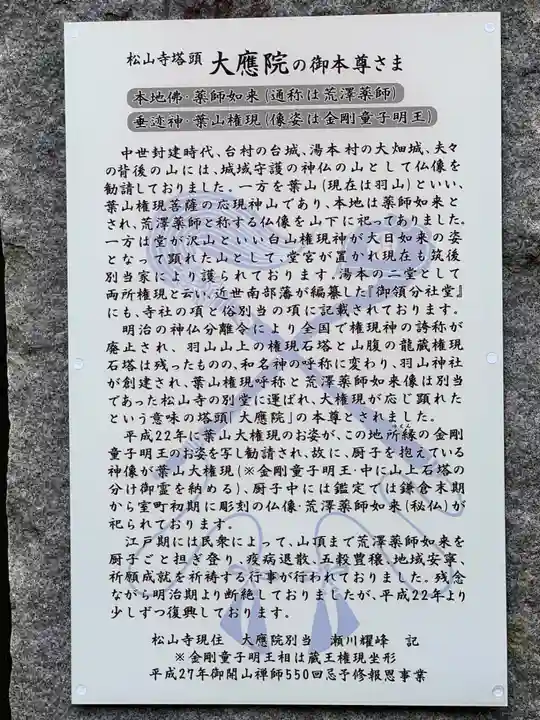 松山寺塔頭 大應院の御本尊さま
本地佛・薬師如来(通称は荒澤薬師)
垂迹神・葉山権現(像姿は金剛童子明王)
中世封建時代、台村の台城、湯本村の大畑城、夫々
の背後の山には、城域守護の神仏の山として仏像を
勧請しておりました。一方を葉山(現在は羽山)といい、
葉山権現菩薩の応現神山であり、本地は薬師如来と
され、荒澤薬師と称する仏像を山下に祀ってありました。
一方は堂が沢山といい白山権現神が大日如来の姿
となって顕れた山として、堂宮が置かれ現在も筑後
別当家により護られております。湯本の二堂として
両所権現と云い、近世南部藩が編纂した『御領分社堂』
にも、寺社の項と俗別当の項に記載されております。
明治の神仏分離令により全国で権現神の誇称が
廃止され、羽山山上の権現石塔と山腹の龍蔵権現
石塔は残ったものの、和名神の呼称に変わり、羽山神社
が創建され、葉山権現呼称と荒澤薬師如来像は別当
であった松山寺の別堂に運ばれ、大権現が応じ顕れた
という意味の塔頭「大應院」の本尊とされました。
平成22年に葉山大権現のお姿が、この地所縁の金剛
童子明王のお姿を写し勧請され、故に、厨子を抱えている
神像が葉山大権現(※金剛童子明王・中に山上石塔の
分け御霊を納める)、厨子中には鑑定では鎌倉末期
から室町初期に彫刻の仏像・荒澤薬師如来(秘仏)が
祀られております。
江戸期には民衆によって、山頂まで荒澤薬師如来を
厨子ごと担ぎ登り、疫病退散、五穀豊穣、地域安寧、
祈願成就を祈祷する行事が行われておりました。残念
ながら明治期より断絶しておりましたが、平成22年より
少しずつ復興しております。
松山寺現住 大應院別当 瀬川耀峰 記
※金剛童子明王相は蔵王権現坐形
平成27年御開山禅師550回忌予修報恩事業